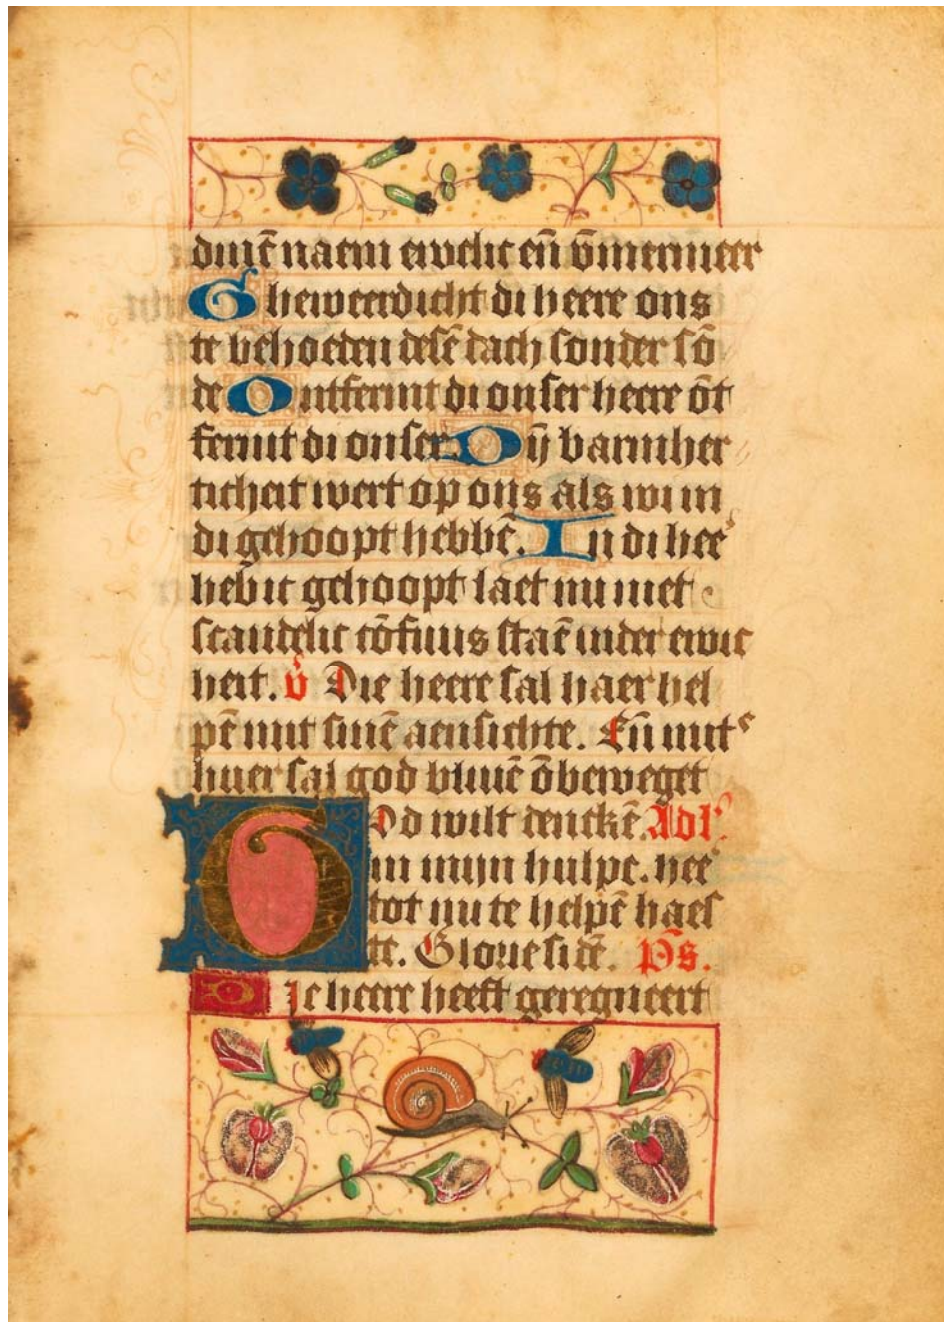 dinē naem ewelic eñ ỹmermeer
Gheweerdicht di heere ons
te behoeden desē dach sonder sō
de Ontfermt di onser heere ōt
fermt di onser. Dijn barmher
ticheit wert op ons als wi in
di gehoopt hebbē. In di hee
heb ic gehoopt laet mi niet
scandelic cōfuus staē inder ewic
heit. v̄ Die heere sal haer hel
pē mit sinē aensichte. Eñ mit
huer sal god bliuē ōbeweget
God wilt denckē. Ad
in mijn hulpe. hee
tot mi te helpē haes
te. Glorie si dē. p̄s.
Die heere heeft geregneert